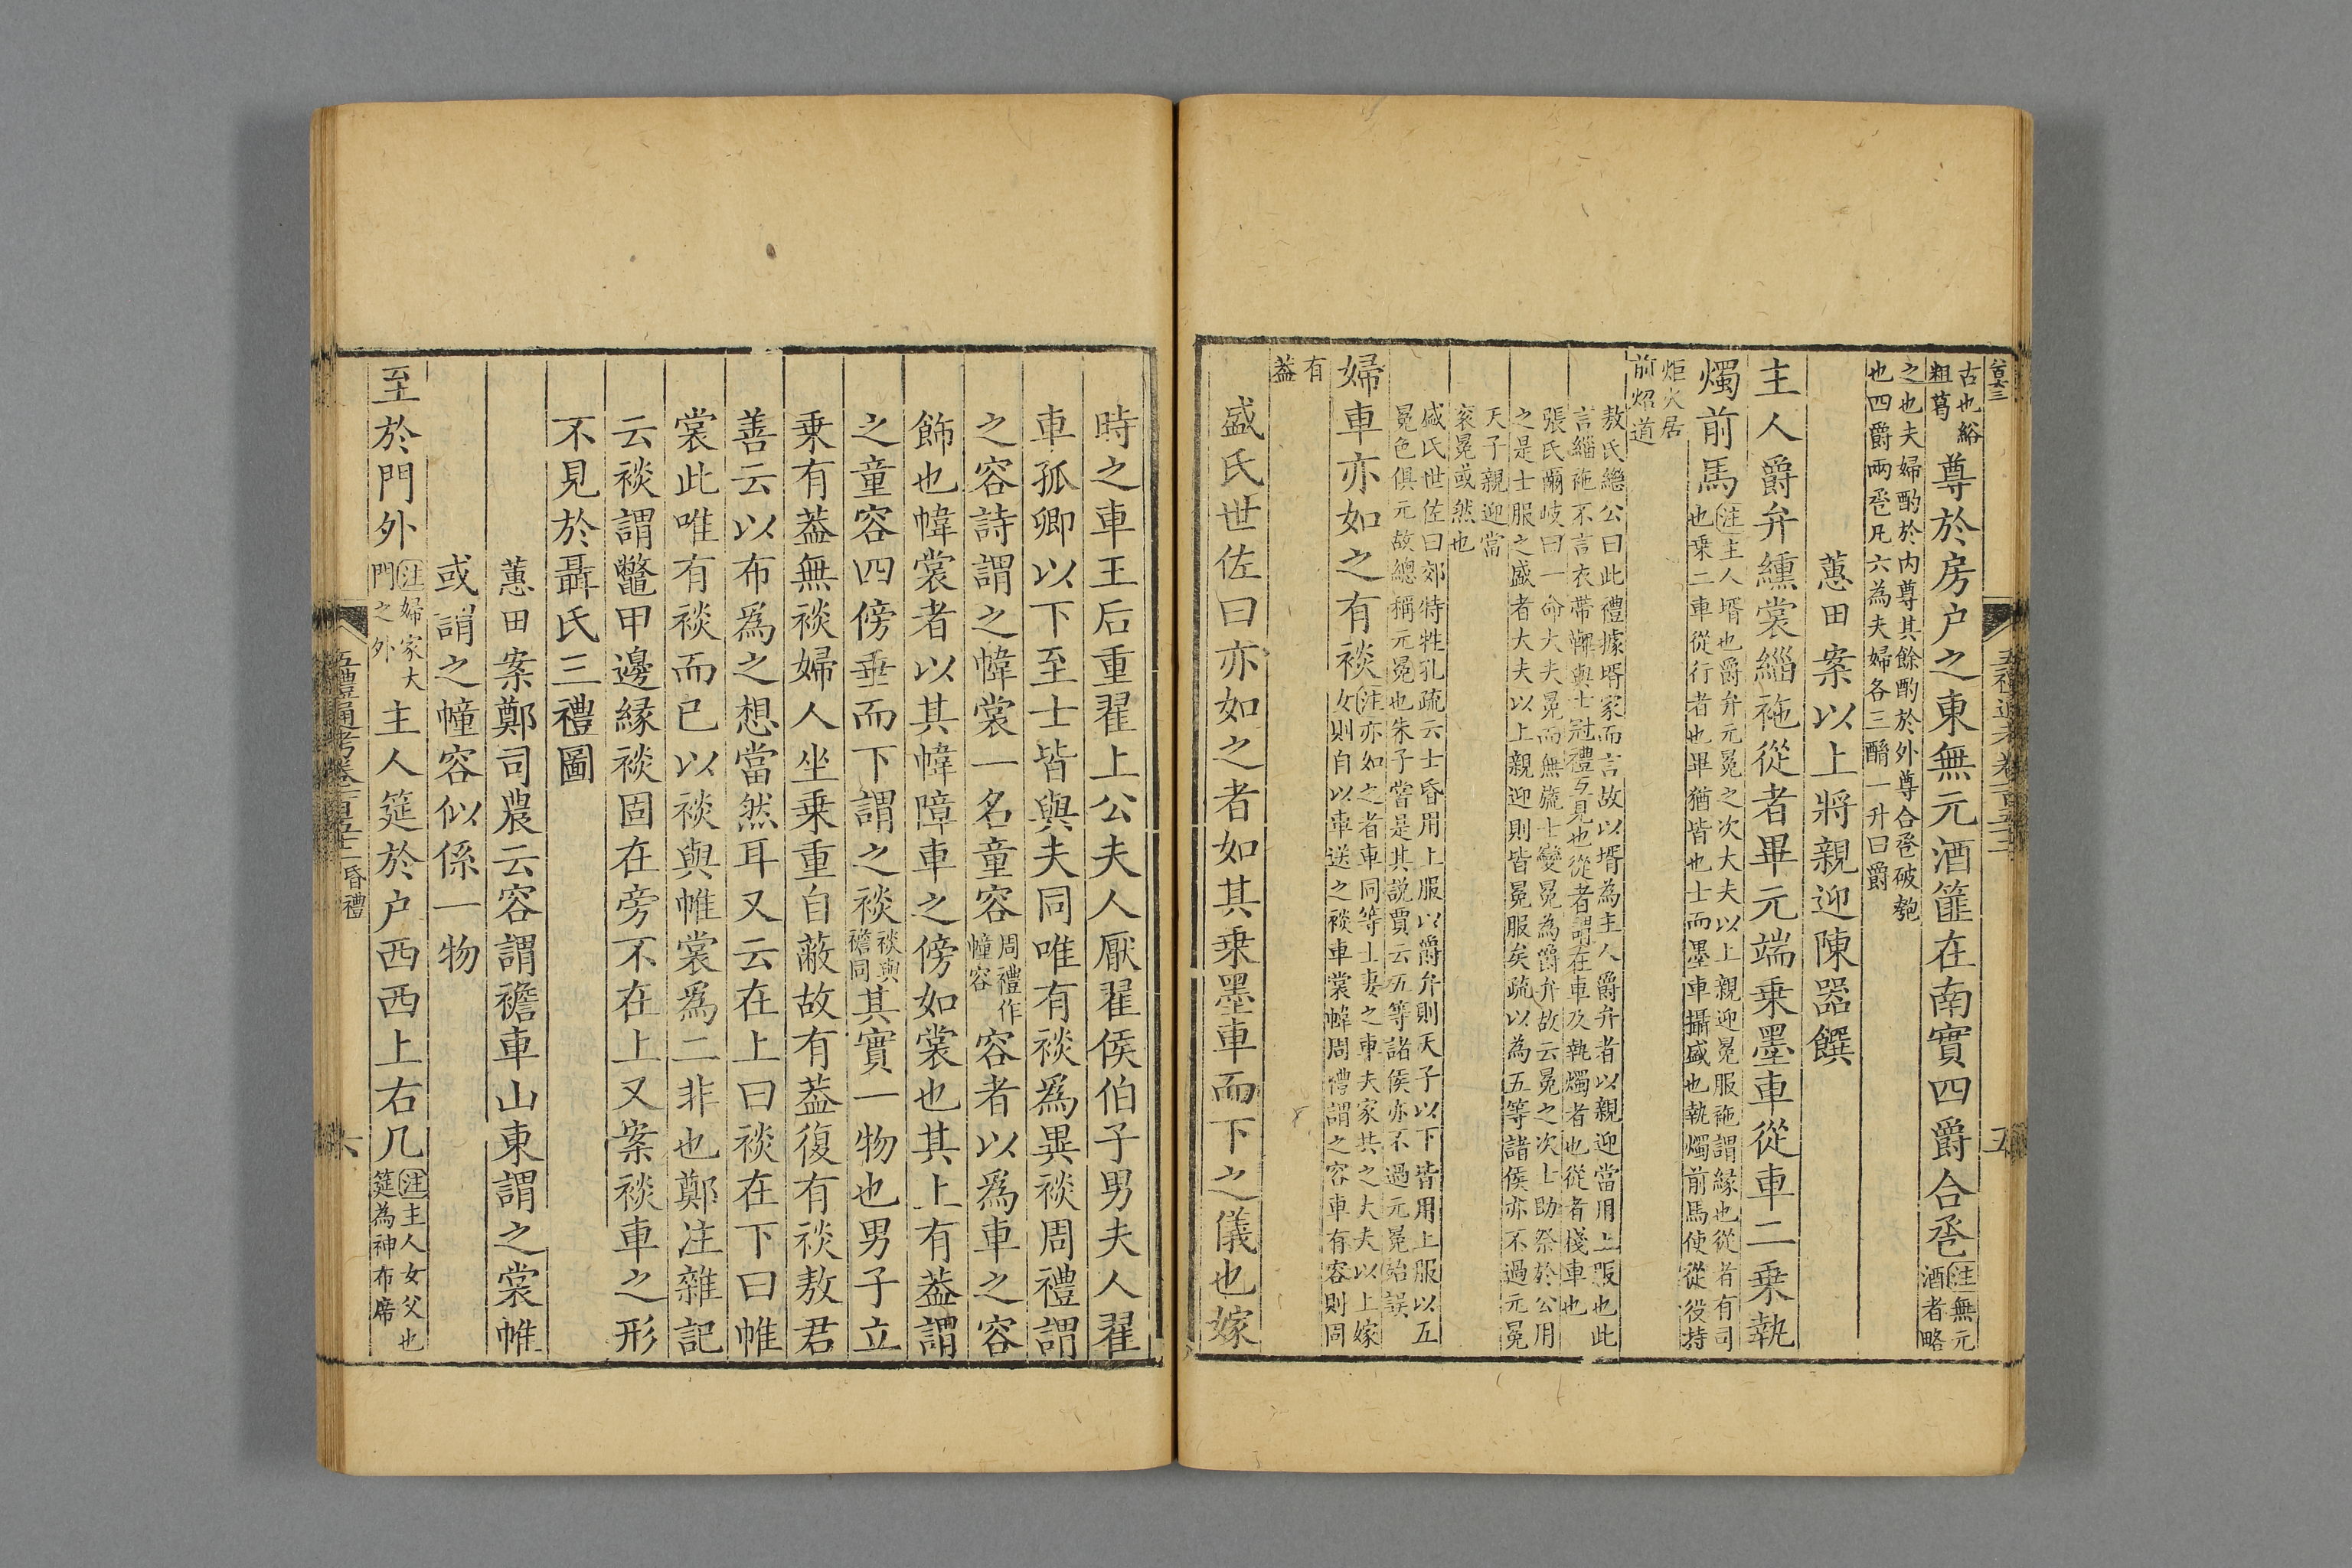 古也綌
粗葛
尊於房户之東無元酒篚在南實四爵合巹
注無元
酒者略
之也夫婦酌於内尊其餘酌於外尊合巹破匏
也四爵兩巹凡六為夫婦各三酳一升曰爵
蕙田案以上將親迎陳器饌
主人爵弁纁裳緇袘從者畢元端乗墨車從車二乗執
燭前馬
注主人壻也爵弁元冕之次大夫以上親迎冕服袘謂緣也從者有司
也乗二車從行者也畢猶皆也士而墨車攝盛也執燭前馬使從役持
炬火居
前炤道
敖氏繼公曰此禮據壻家而言故以壻為主人爵弁者以親迎當用上服也此
言緇袘不言衣帶韠與士冠禮与見也從者謂在車及執燭者也從者棧車也
張氏爾岐曰一命大夫冕而無旒士變冕為爵弁故云冕之次士助祭於公用
之是士服之盛者大夫以上親迎則皆冕服矣疏以為五等諸侯亦不過元冕
天子親迎當
衮冕或然也
盛氏世佐曰郊特牲孔疏云士昏用上服以爵弁則天子以下皆用上服以五
冕色俱元故總稱元冕也朱子嘗是其説賈云五等諸侯亦不過元冕始誤
婦車亦如之有裧
注亦如之者車同等士妻之車夫家共之大夫以上嫁
女則自以車送之裧車裳幃周禮謂之容車有容則同
有
葢
盛氏世佐曰亦如之者如其乗墨車而下之儀也嫁
時之車王后重翟上公夫人厭翟侯伯子男夫人翟
車孤卿以下至士皆與夫同唯有裧爲異裧周禮謂
之容詩謂之幃裳一名童容
周禮作
幢容
容者以爲車之容
飾也幃裳者以其幃障車之傍如裳也其上有葢謂
之童容四傍垂而下謂之裧
裧與
襜同
其實一物也男子立
乗有葢無裧婦人坐乗重自蔽故有葢復有裧敖君
善云以布爲之想當然耳又云在上曰裧在下曰帷
裳此唯有裧而已以裧與帷裳爲二非也鄭注雜記
云裧謂鼈甲邊緣裧固在旁不在上又案裧車之形
不見於聶氏三禮圖
蕙田案鄭司農云容謂襜車山東謂之裳帷
或謂之幢容似係一物
至於門外
注婦家大
門之外
主人筵於户西西上右几
注主人女父也
筵為神布席
五禮通考卷一百五十二 昏禮
六